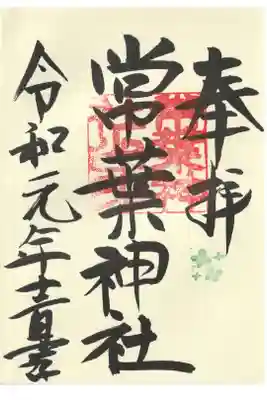 奉拝
常葉神社
令和元年十一月